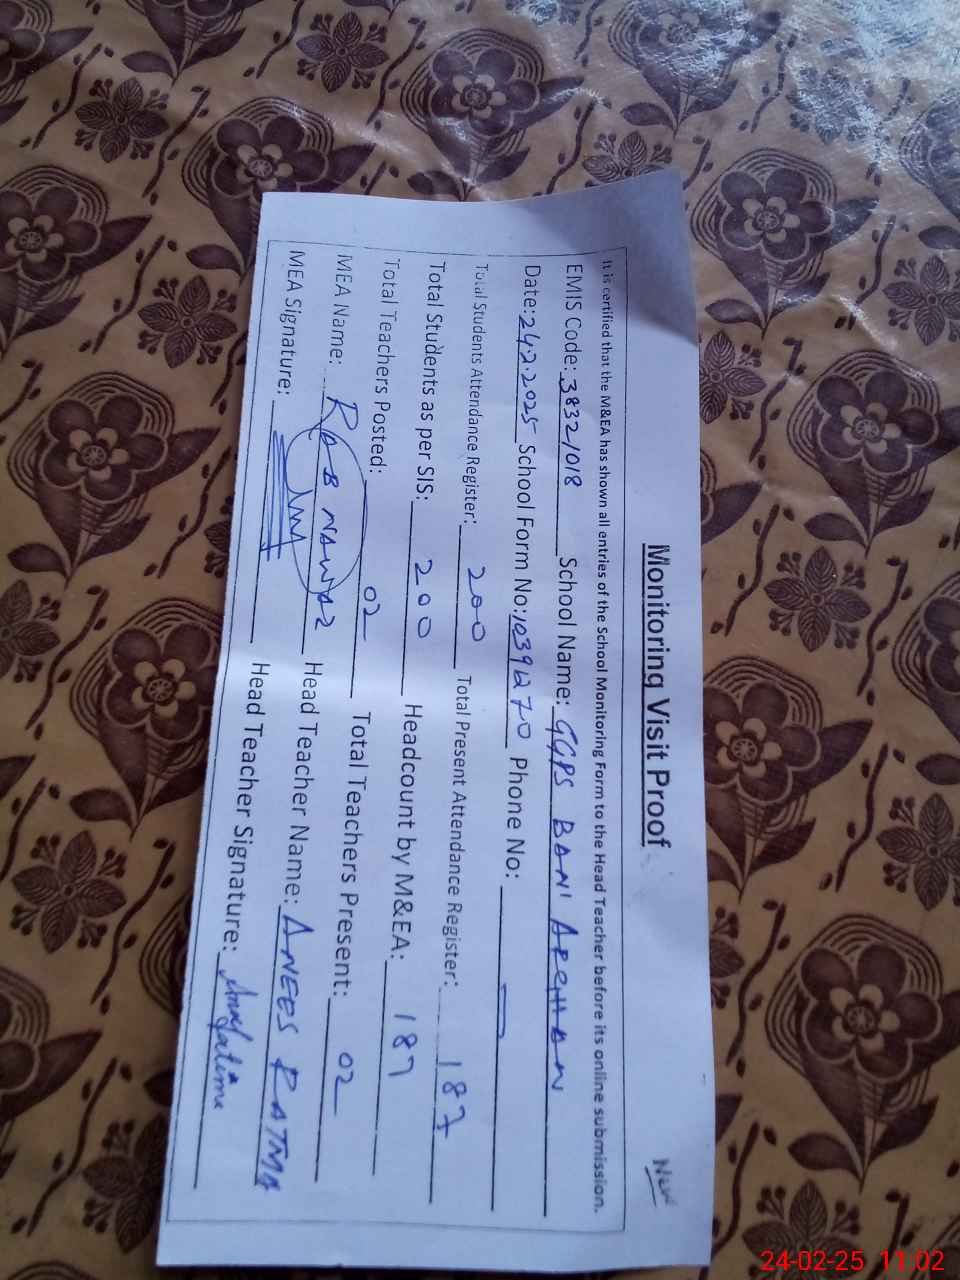 New
Monitoring Visit Proof
It is certified that the M&EA has shown all entries of the School Monitoring Form to the Head Teacher before its online submission.
EMIS Code: 38321018 School Name: GGPS BANI ARGHAN
Date: 24.2.2025 School Form No: Phone No: —
Total Students Attendance Register: 200 Total Present Attendance Register: 187
Total Students as per SIS: 200 Headcount by M&EA: 187
Total Teachers Posted: 02 Total Teachers Present: 02
MEA Name: RAB NAWAZ Head Teacher Name: ANEES FATMA
MEA Signature: Head Teacher Signature:
24-02-25 11:02